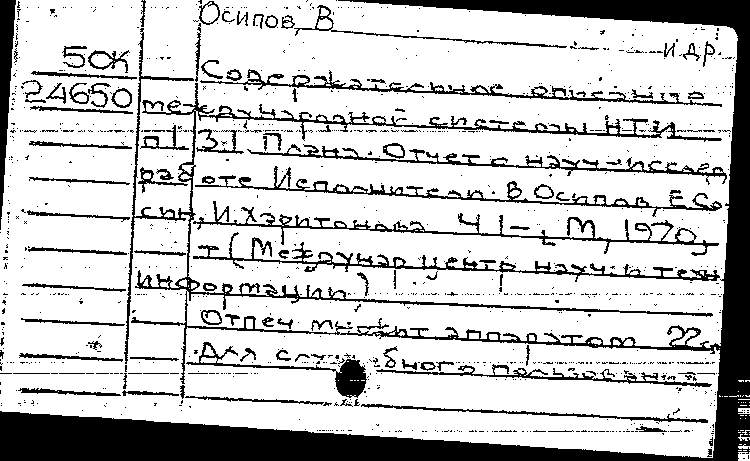 Осипов, В
и др.
50К
Содержательное описание
24650 международной системы НТИ
п 1. 3.1. Плана. Отчет о науч-исслед
работе Исполнители: В.Осипов, Е.Со-
син, И.Харитонова Ч 1- , М, 1970,
т (Междунар центр науч и техн
информации)
Отпеч множит аппаратом 22см
Для служебного пользования